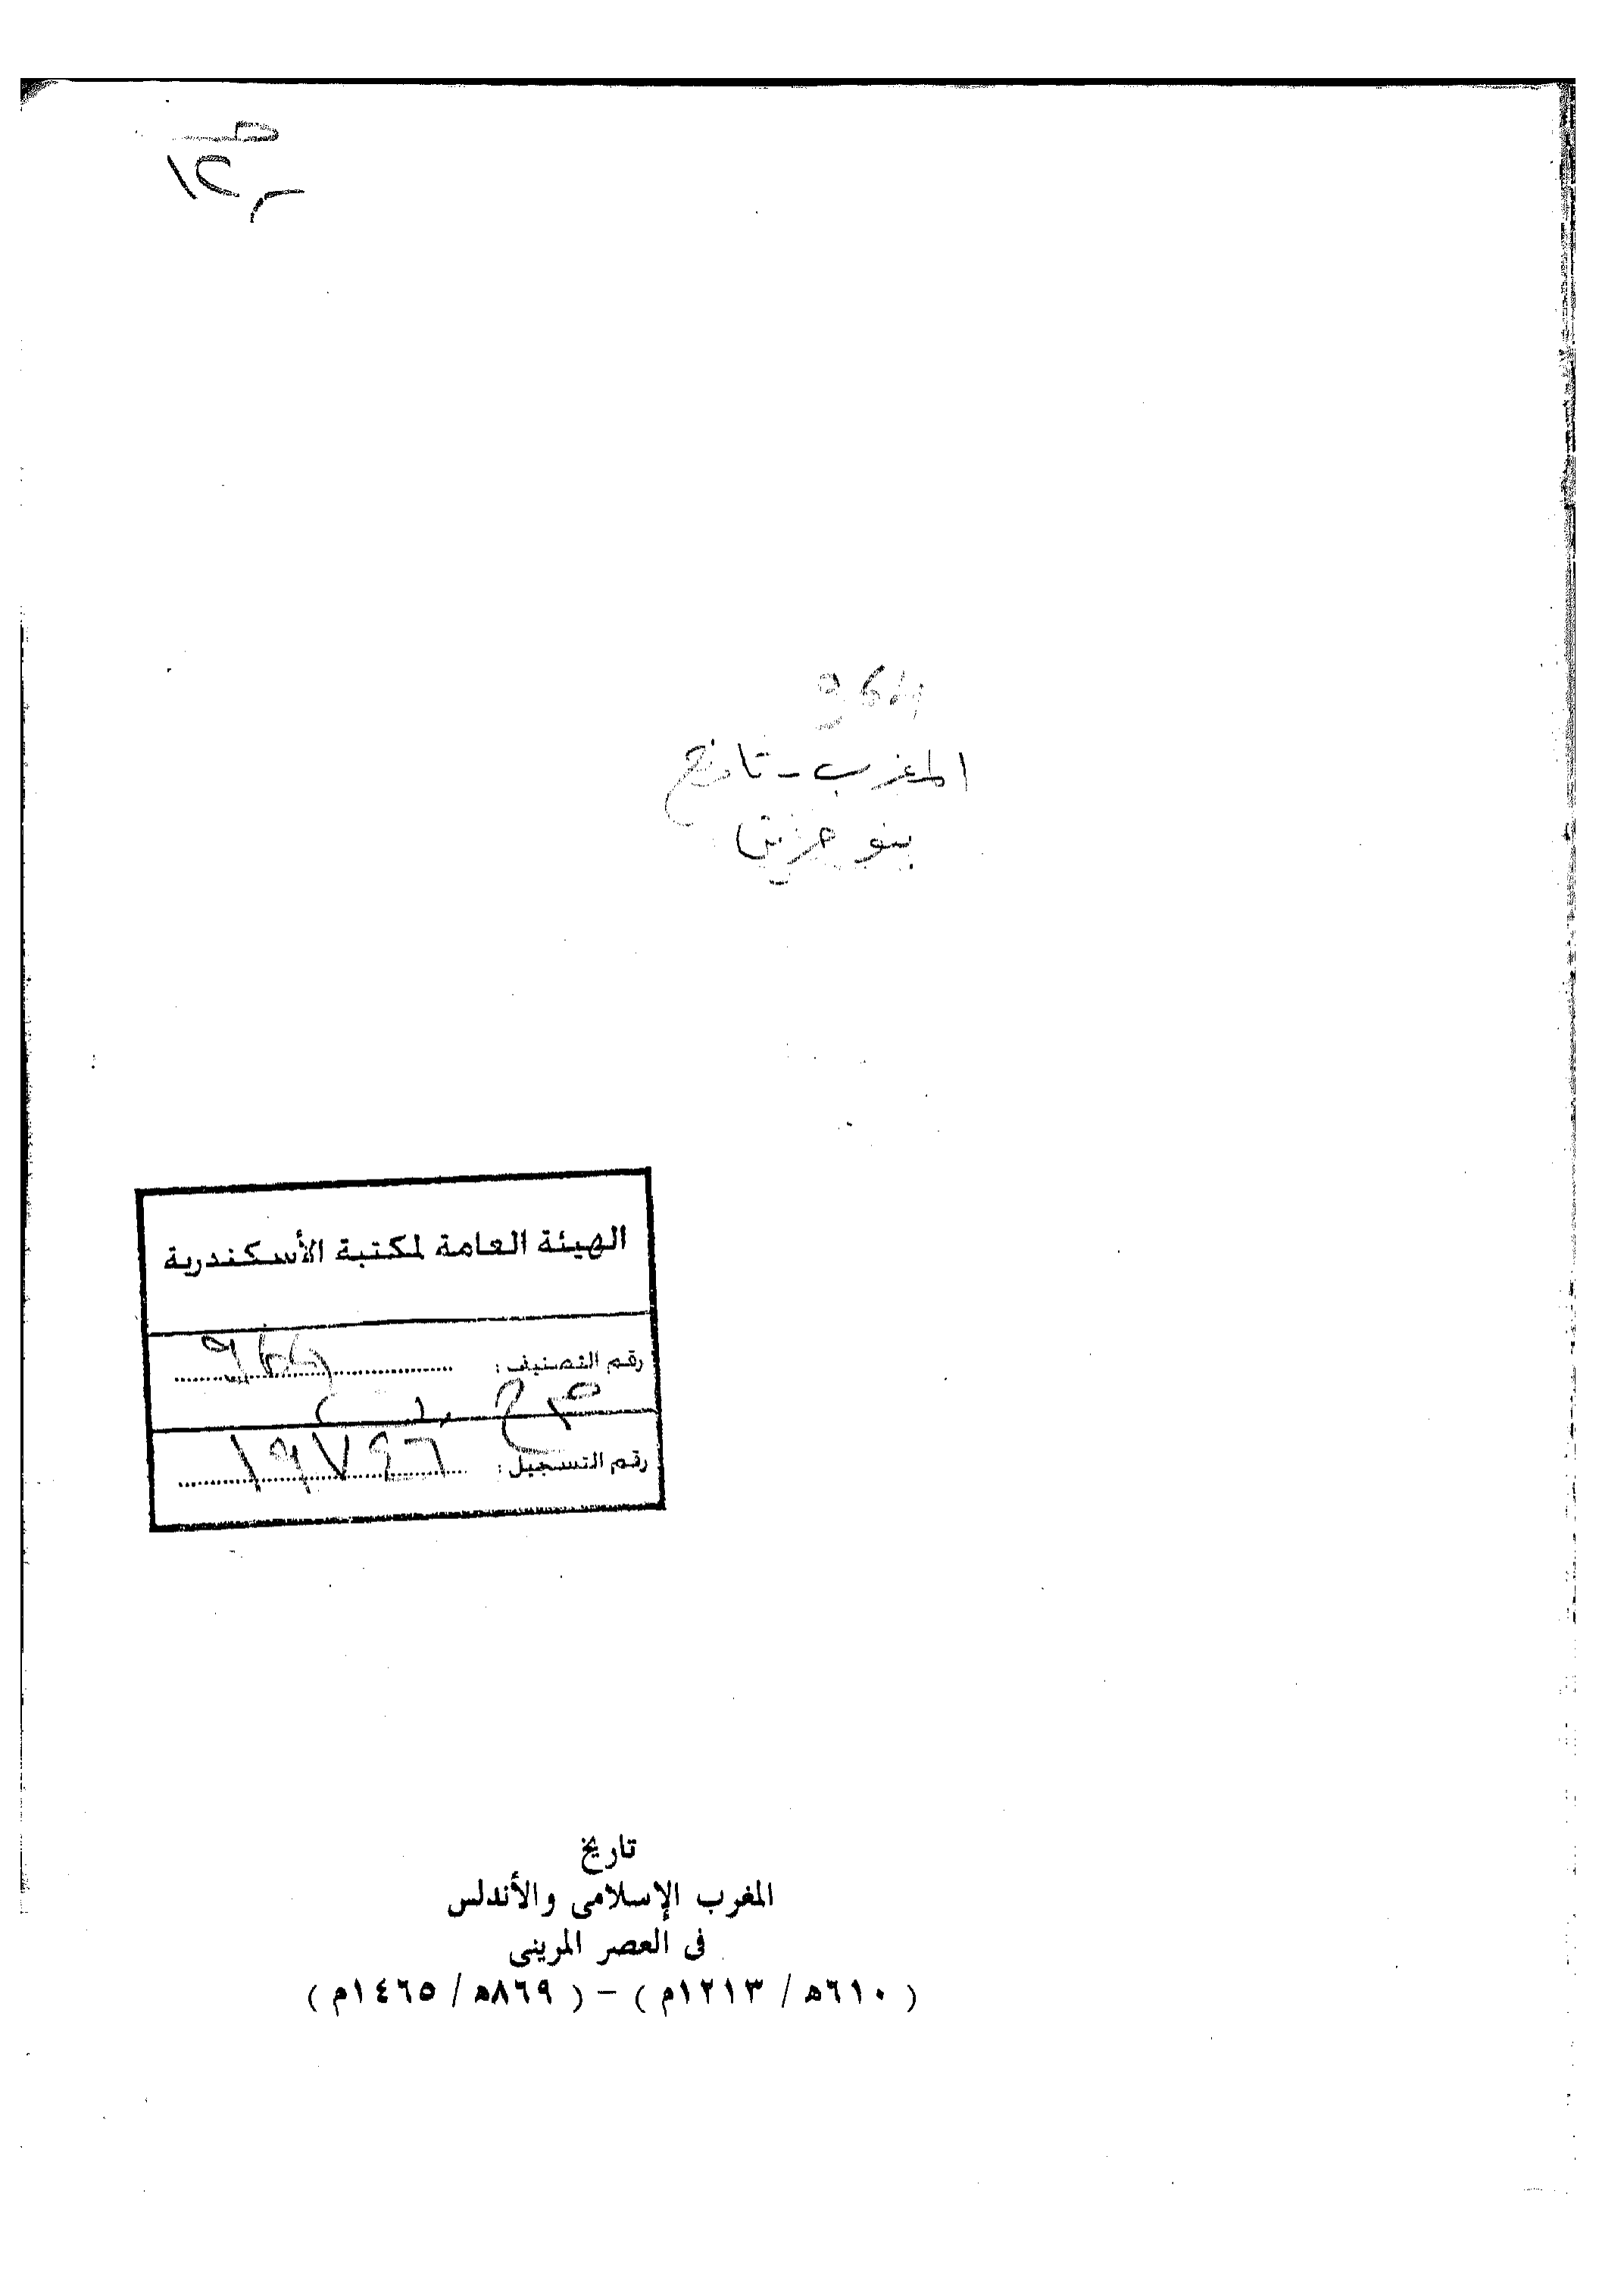 المغرب - تاريخ
بنو مرين
الهيئة العامة لمكتبة الأسكندرية
رقم التصنيف:
رقم التسجيل: ١٩٧٤٦
تاريخ
المغرب الإسلامى والأندلس
فى العصر المرينى
( ٦١٠هـ / ١٢١٣م ) – ( ٨٦٩هـ / ١٤٦٥م )